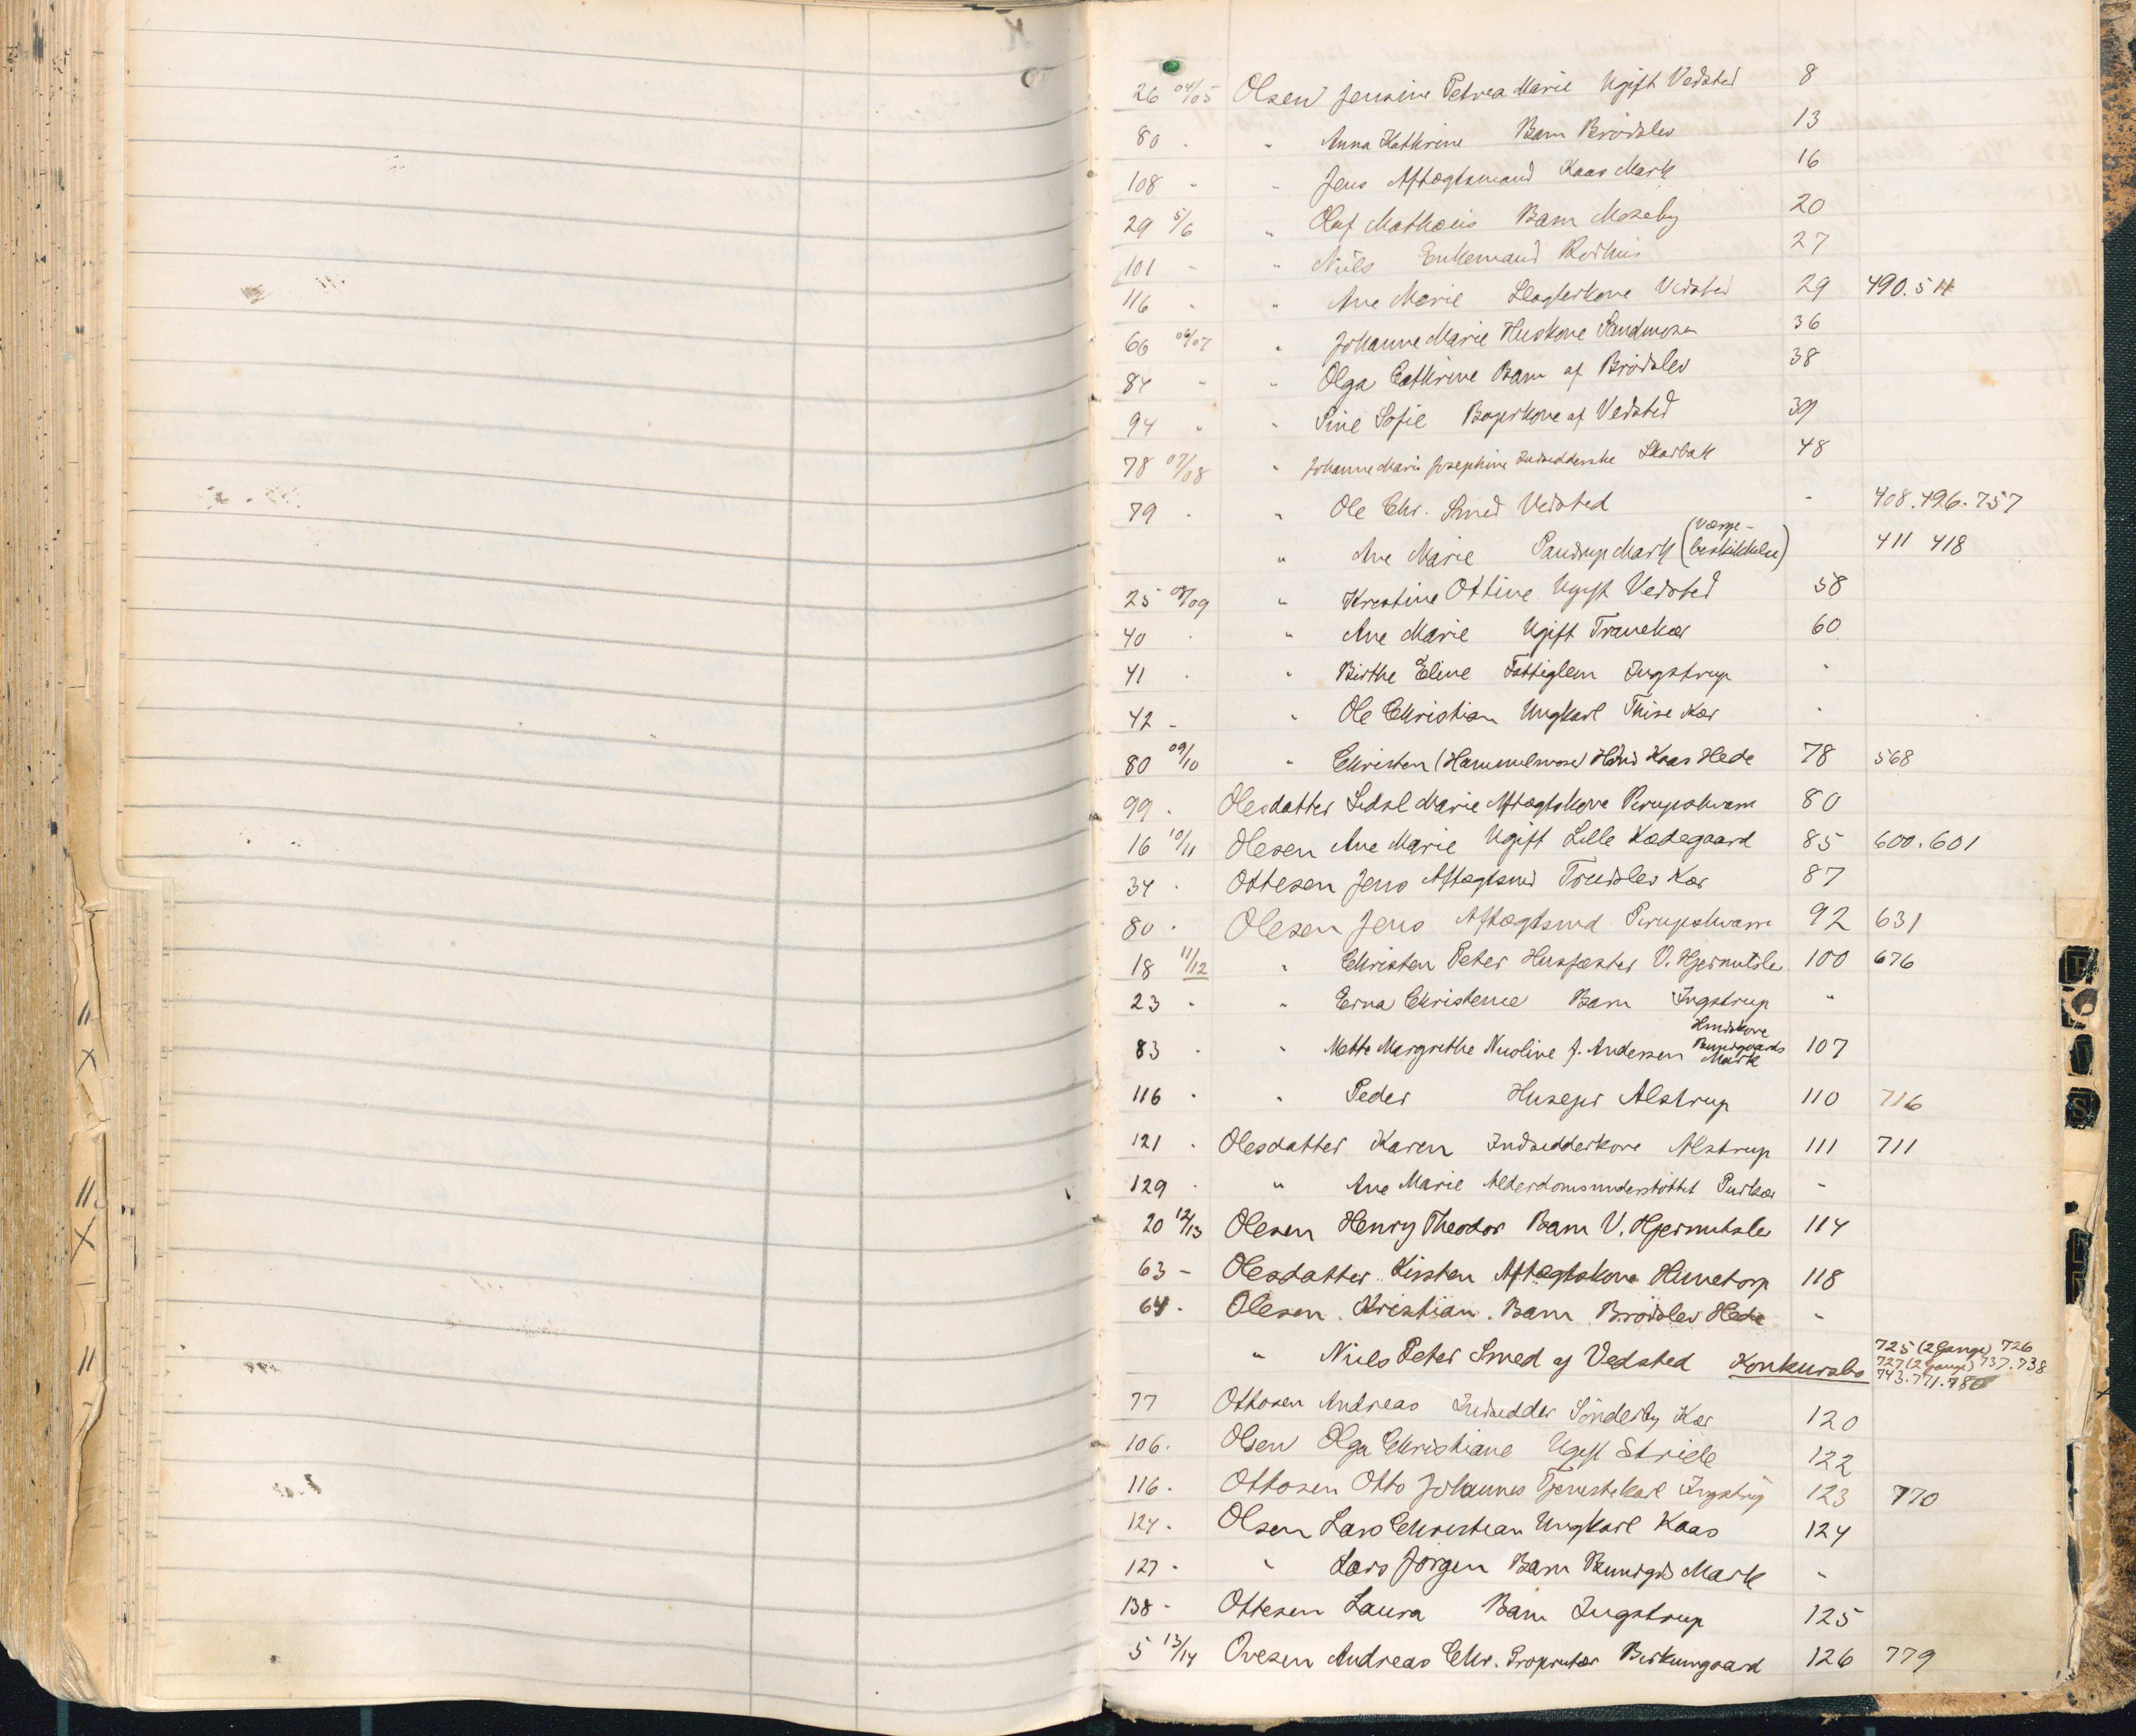 26 04/05 Olsen Jensine Petrea Marie Ugift Vedsted 8
80 " " Anna Kathrine Barn Brødslev 13
108 " " Jens Aftægtsmand Kaas Mark 16
29 5/6 " Oluf Mathæus Barn Moseby 20
101 " " Niels Enkemand Rødhus 27
116 " " Ane Marie Slagterkone Vedsted 29 490.511
66 06/07 " Johanne Marie Huskone Sandmosen 36
84 " " Olga Cathrine Barn af Brødslev 38
94 " " Sine Sofie af Vedsted 39
78 07/08 " Johanne Marie Josephine Indsidderske Skarbak 48
79 " " Ole Chr. Smed Vedsted " 408.496.757
" Ane Marie Pandrup Mark (Værge-beskikkelse) 411 418
25 08/09 " Kirstine Ottine Ugift Vedsted 58
40 " " Ane Marie Ugift Tranekær 60
41 " " Birthe Eline Fattiglem Ingstrup "
42 - " Ole Christian Ungkarl Thise Kær "
80 09/10 " Christen (Hammelmose) Hmd Kaas Hede 78 568
99 " Olesdatter Sidsel Marie Aftægtskone Pirupshvarre 80
16 10/11 Olesen Ane Marie Ugift Lille Kædegaard 85 600.601
34 " Ottesen Jens Aftægtsmd Trudslev Kær 87
80 " Olesen Jens Aftægtsmd Pirupshvarre 92 631
18 11/12 " Christen Peter Husfæster V. Hjermitslev 100 676
23 " " Erna Christence Barn Ingstrup "
83 " " Mette Margrethe Nicoline f. Andersen Hmdskone Bundgaards Mark 107
116 " " Peder Husejer Alstrup 110 716
121 " Olesdatter Karen Indsidderkone Alstrup 111 711
129 " " Ane Marie Alderdomsunderstøttet Purkær "
20 12/13 Olesen Henry Theodor Barn V. Hjermitslev 114
63 - Olesdatter Kirsten Aftægtskone Hunetorp 118
64 - Olesen Kristian Barn Brødslev Hede "
" Niels Peter Smed af Vedsted Konkursbo 725 (2 Gange) 726
727 (2 Gange) 737.738
743.771.780
77 Ottosen Andreas Indsidder Sønderby Kær 120
106 " Olsen Olga Christiane Ugift Stride 122
116 " Ottosen Otto Johannes Tjenestekarl Ingstrup 123 770
124 " Olsen Lars Christian Ungkarl Kaas 124
127 " " Lars Jørgen Barn Bundgds Mark "
138 " Ottesen Laura Barn Ingstrup 125
5 13/14 Ovesen Andreas Chr. Proprietær Birkumgaard 126 779